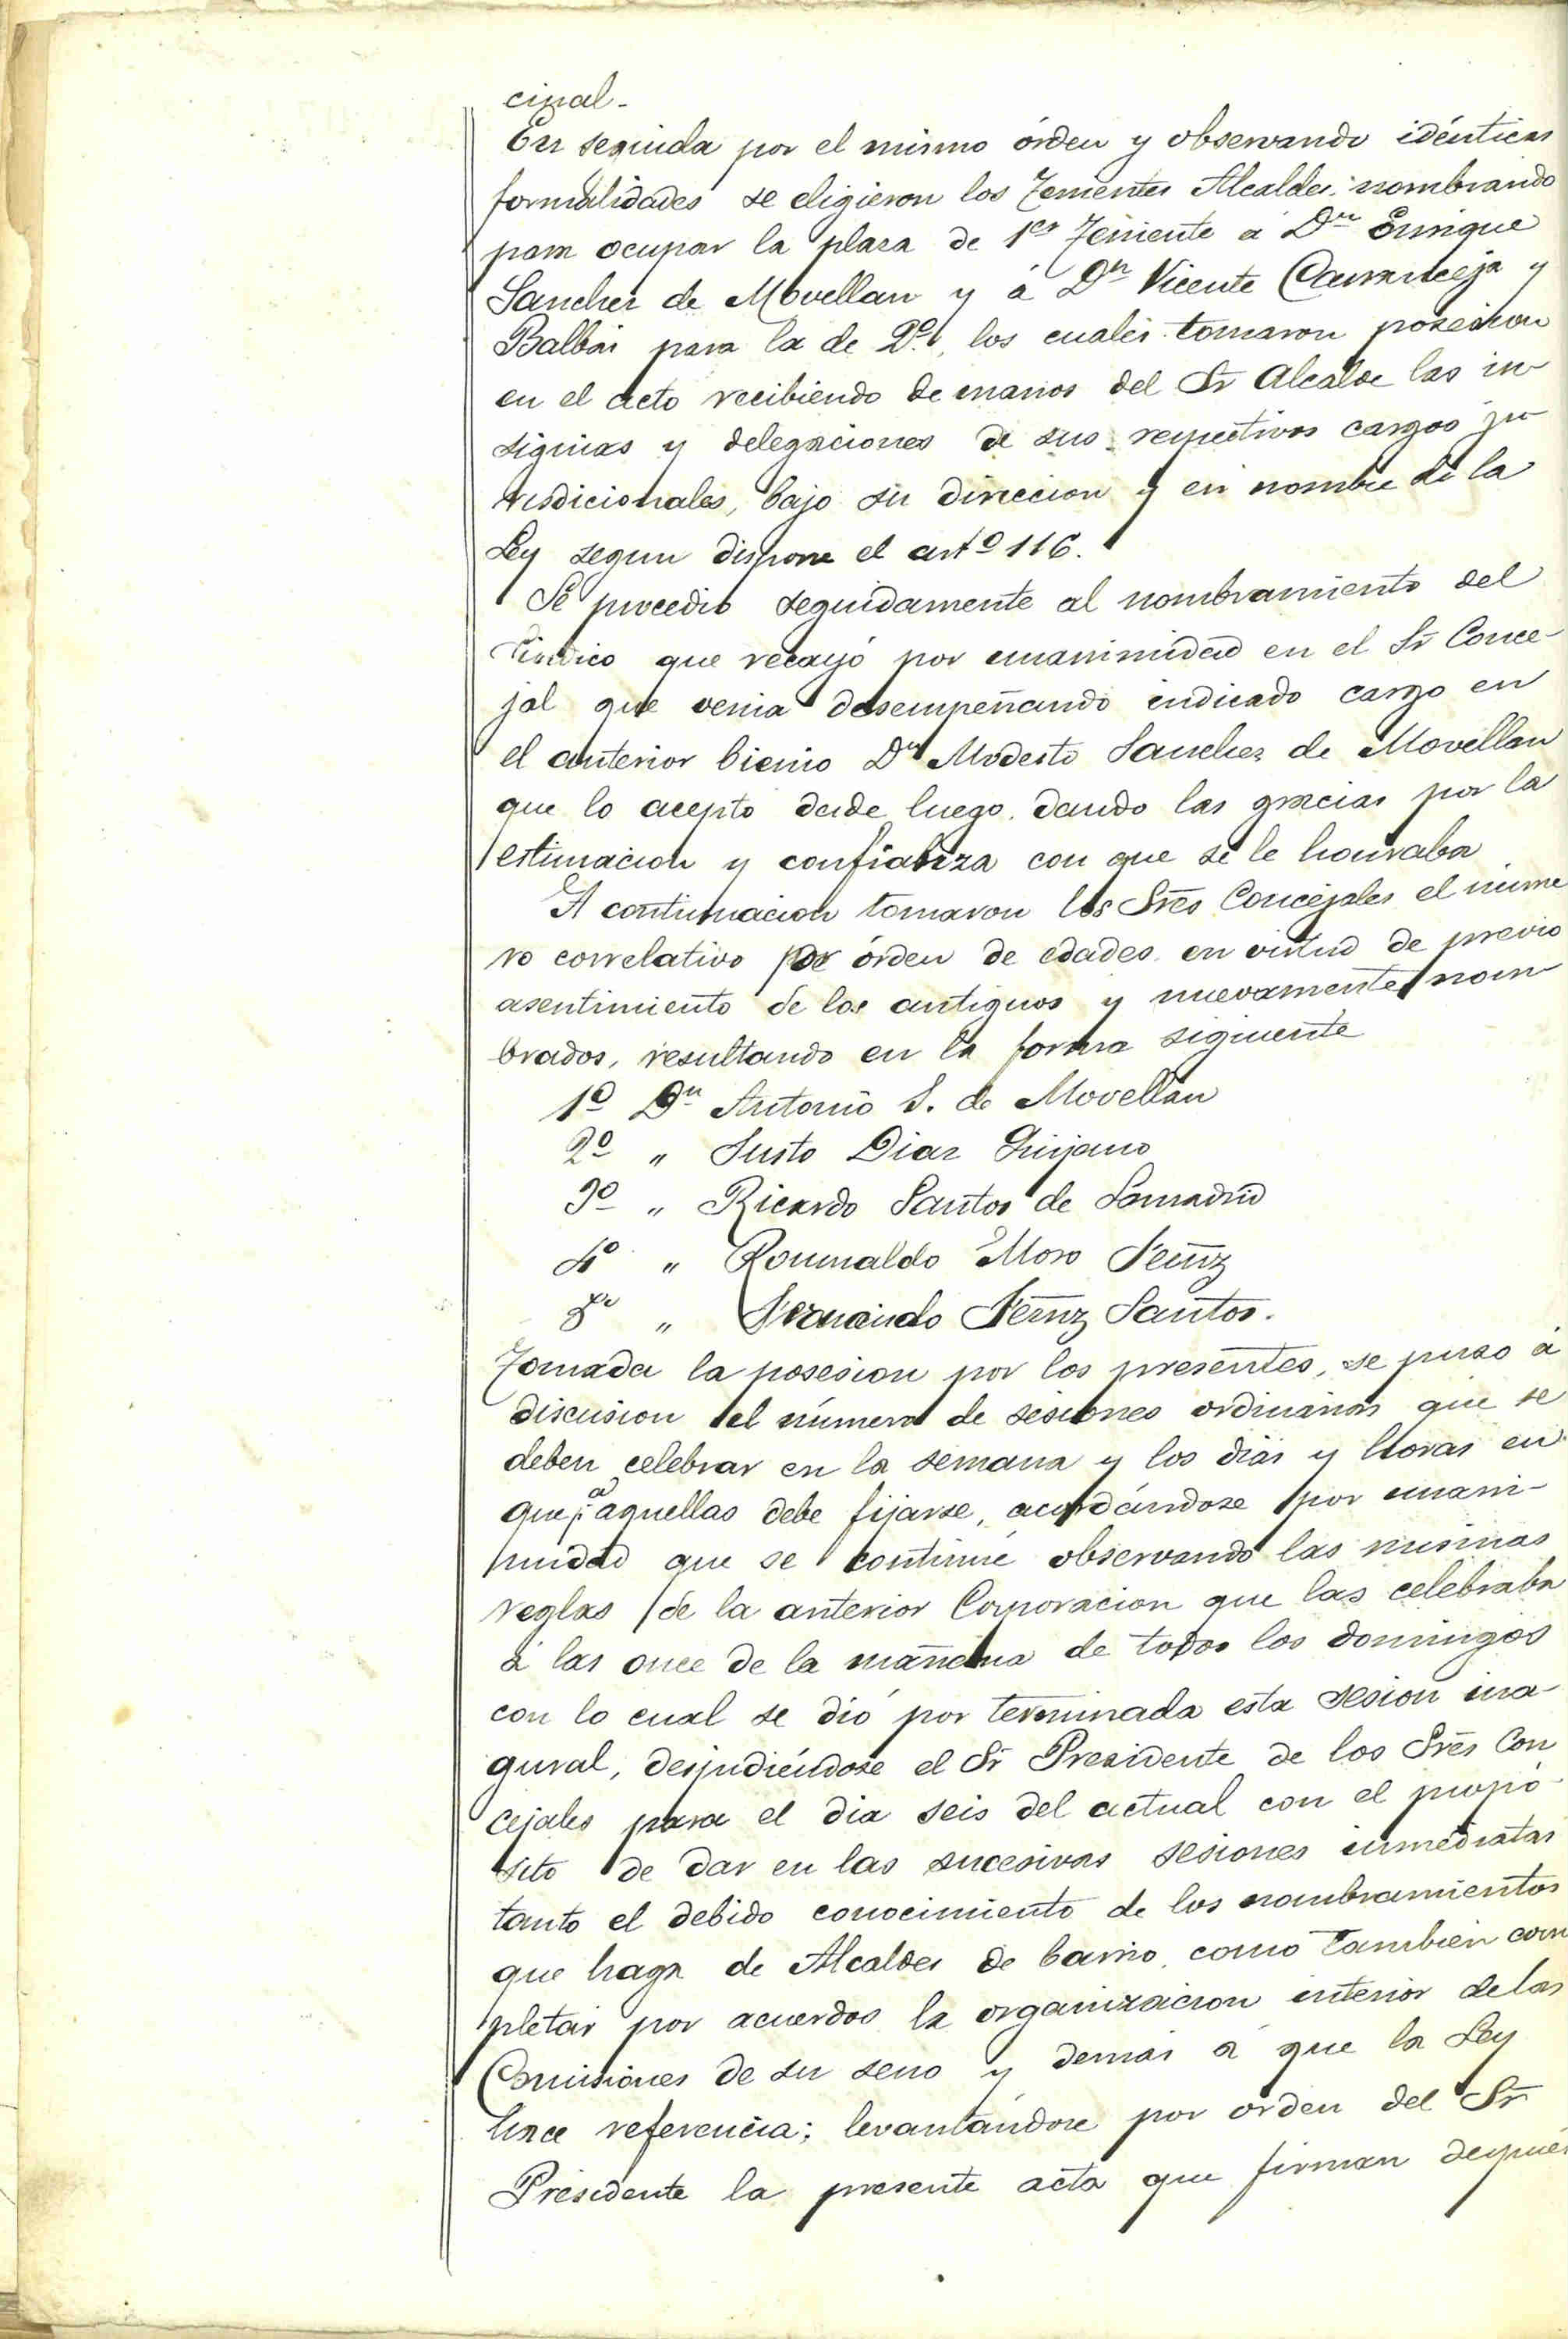 cipal-
En seguida por el mismo órden y observando idénticas
formalidades se eligieron los Tenientes Alcaldes nombrando
para ocupar la plaza de 1er Teniente á Dn Enrique
Sanchez de Movellan y á Dn Vicente y
Balbás para la de 2º, los cuales tomaron posesion
en el acto recibiendo de manos del Sr Alcalde las in-
signias y delegaciones de sus respectivos cargos ju-
risdicionales, bajo su direccion y en nombre de la
Ley segun dispone el artº 116.
Se procedió seguidamente al nombramiento del
Síndico que recayó por unanimidad en el Sr Conce-
jal que venia desempeñando indicado cargo en
el anterior bienio Dn Modesto Sanchez de Movellan
que lo acepto desde luego, dando las gracias por la
estimacion y confianza con que se le honraba
A continuacion tomaron los Sres Concejales el núme
ro correlativo por órden de edades en virtud de previo
asentimiento de los antiguos y nuevamente nom-
brados, resultando en la forma siguiente
1º Dn Antonio S. de Movellan
2º " Justo Diaz Quijano
3º " Ricardo Santos de Lamadrid
4º " Romualdo Moro Fernz
5º " Fernando Fernz Santos.
Tomada la posesion por los presentes, se puso á
discusion el número de sesiones ordinarias que se
deben celebrar en la semana y los dias y horas en
que aquellas debe fijarse, acordándose por unani-
midad que se continúe observando las mismas
reglas de la anterior Corporacion que las celebraba
á las once de la mañana de todos los domingos
con lo cual se dió por terminada esta sesion ina-
gural, despidiéndose el Sr Presidente de los Sres Con
cejales para el dia seis del actual con el propó-
sito de dar en las sucesivas sesiones inmediatas
tanto el debido conocimiento de los nombramientos
que haga de Alcaldes de barrio, como tambien com
pletar por acuerdos la organizacion interior de las
Comisiones de su seno y demás á que la Ley
hace referencia; levantándose por orden del Sr
Presidente la presente acta que firman después